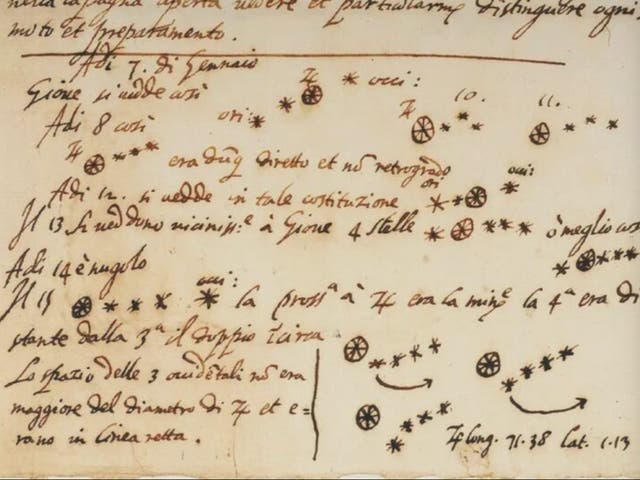 nella campagna aperta vedere et particularmᵉ distinguere ogni
moto et preparamento.
Adi 7. di Gennaio
Gione si vedde così ori: ♃ occi:
Adi 8 così ♃ 10. 11.
♃ era dūq̃ diretto et nō retrogrado
Adi 12. si vedde in tale costituzione ori occi:
Il 13 si veddono viciniss.ᵉ à Gione 4 stelle ò meglio così
Adi 14 è nugolo
Il 15 occi: la pross.ᵃ à ♃ era la min.ᵉ la 4ᵃ era di
stante dalla 3ᵃ il doppio īcirca
Lo spazio delle 3 occidētali nō era
maggiore del diametro di ♃ et e=
rano in linea retta.
♃ long. 71.38 Lat. 1.13